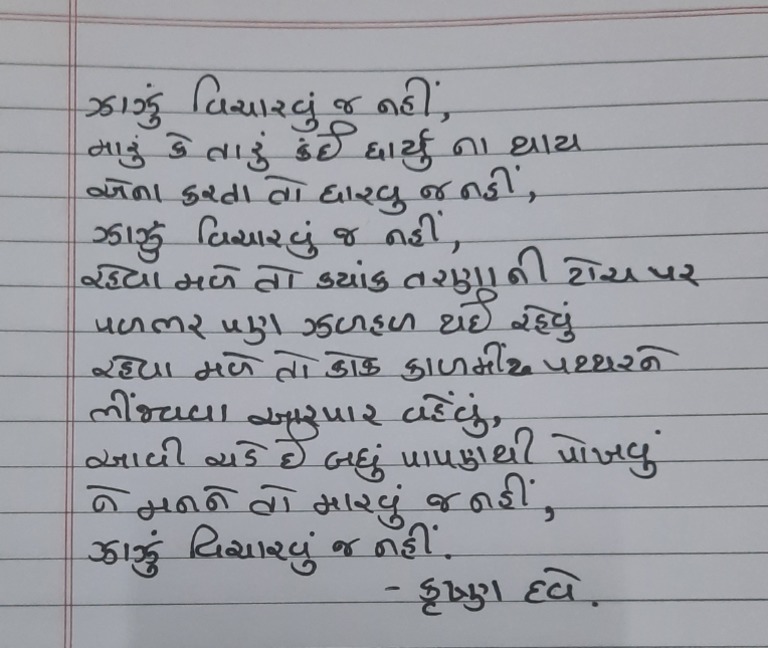 ઝાઝું વિચારવું જ નહીં,
મારું કે તારું કંઈ ધાર્યુ ના થાય
એના કરતા તો ધારવુ જ નહીં,
ઝાઝું વિચારવું જ નહીં,
રહેવા મળે તો ક્યાંક તરણાની ટોચ પર
પળભર પણ ઝળહળ થઈ રહેવું
રહેવા મળે તો કોક કાળમીંઢ પથ્થરને
ભીંજવવા આરપાર વહેવું,
આવી ચડે ઈ બધું પાપણથી પોખવું
ને મનને તો મારવું જ નહીં,
ઝાઝું વિચારવું જ નહીં.
- કૃષ્ણ દવે.